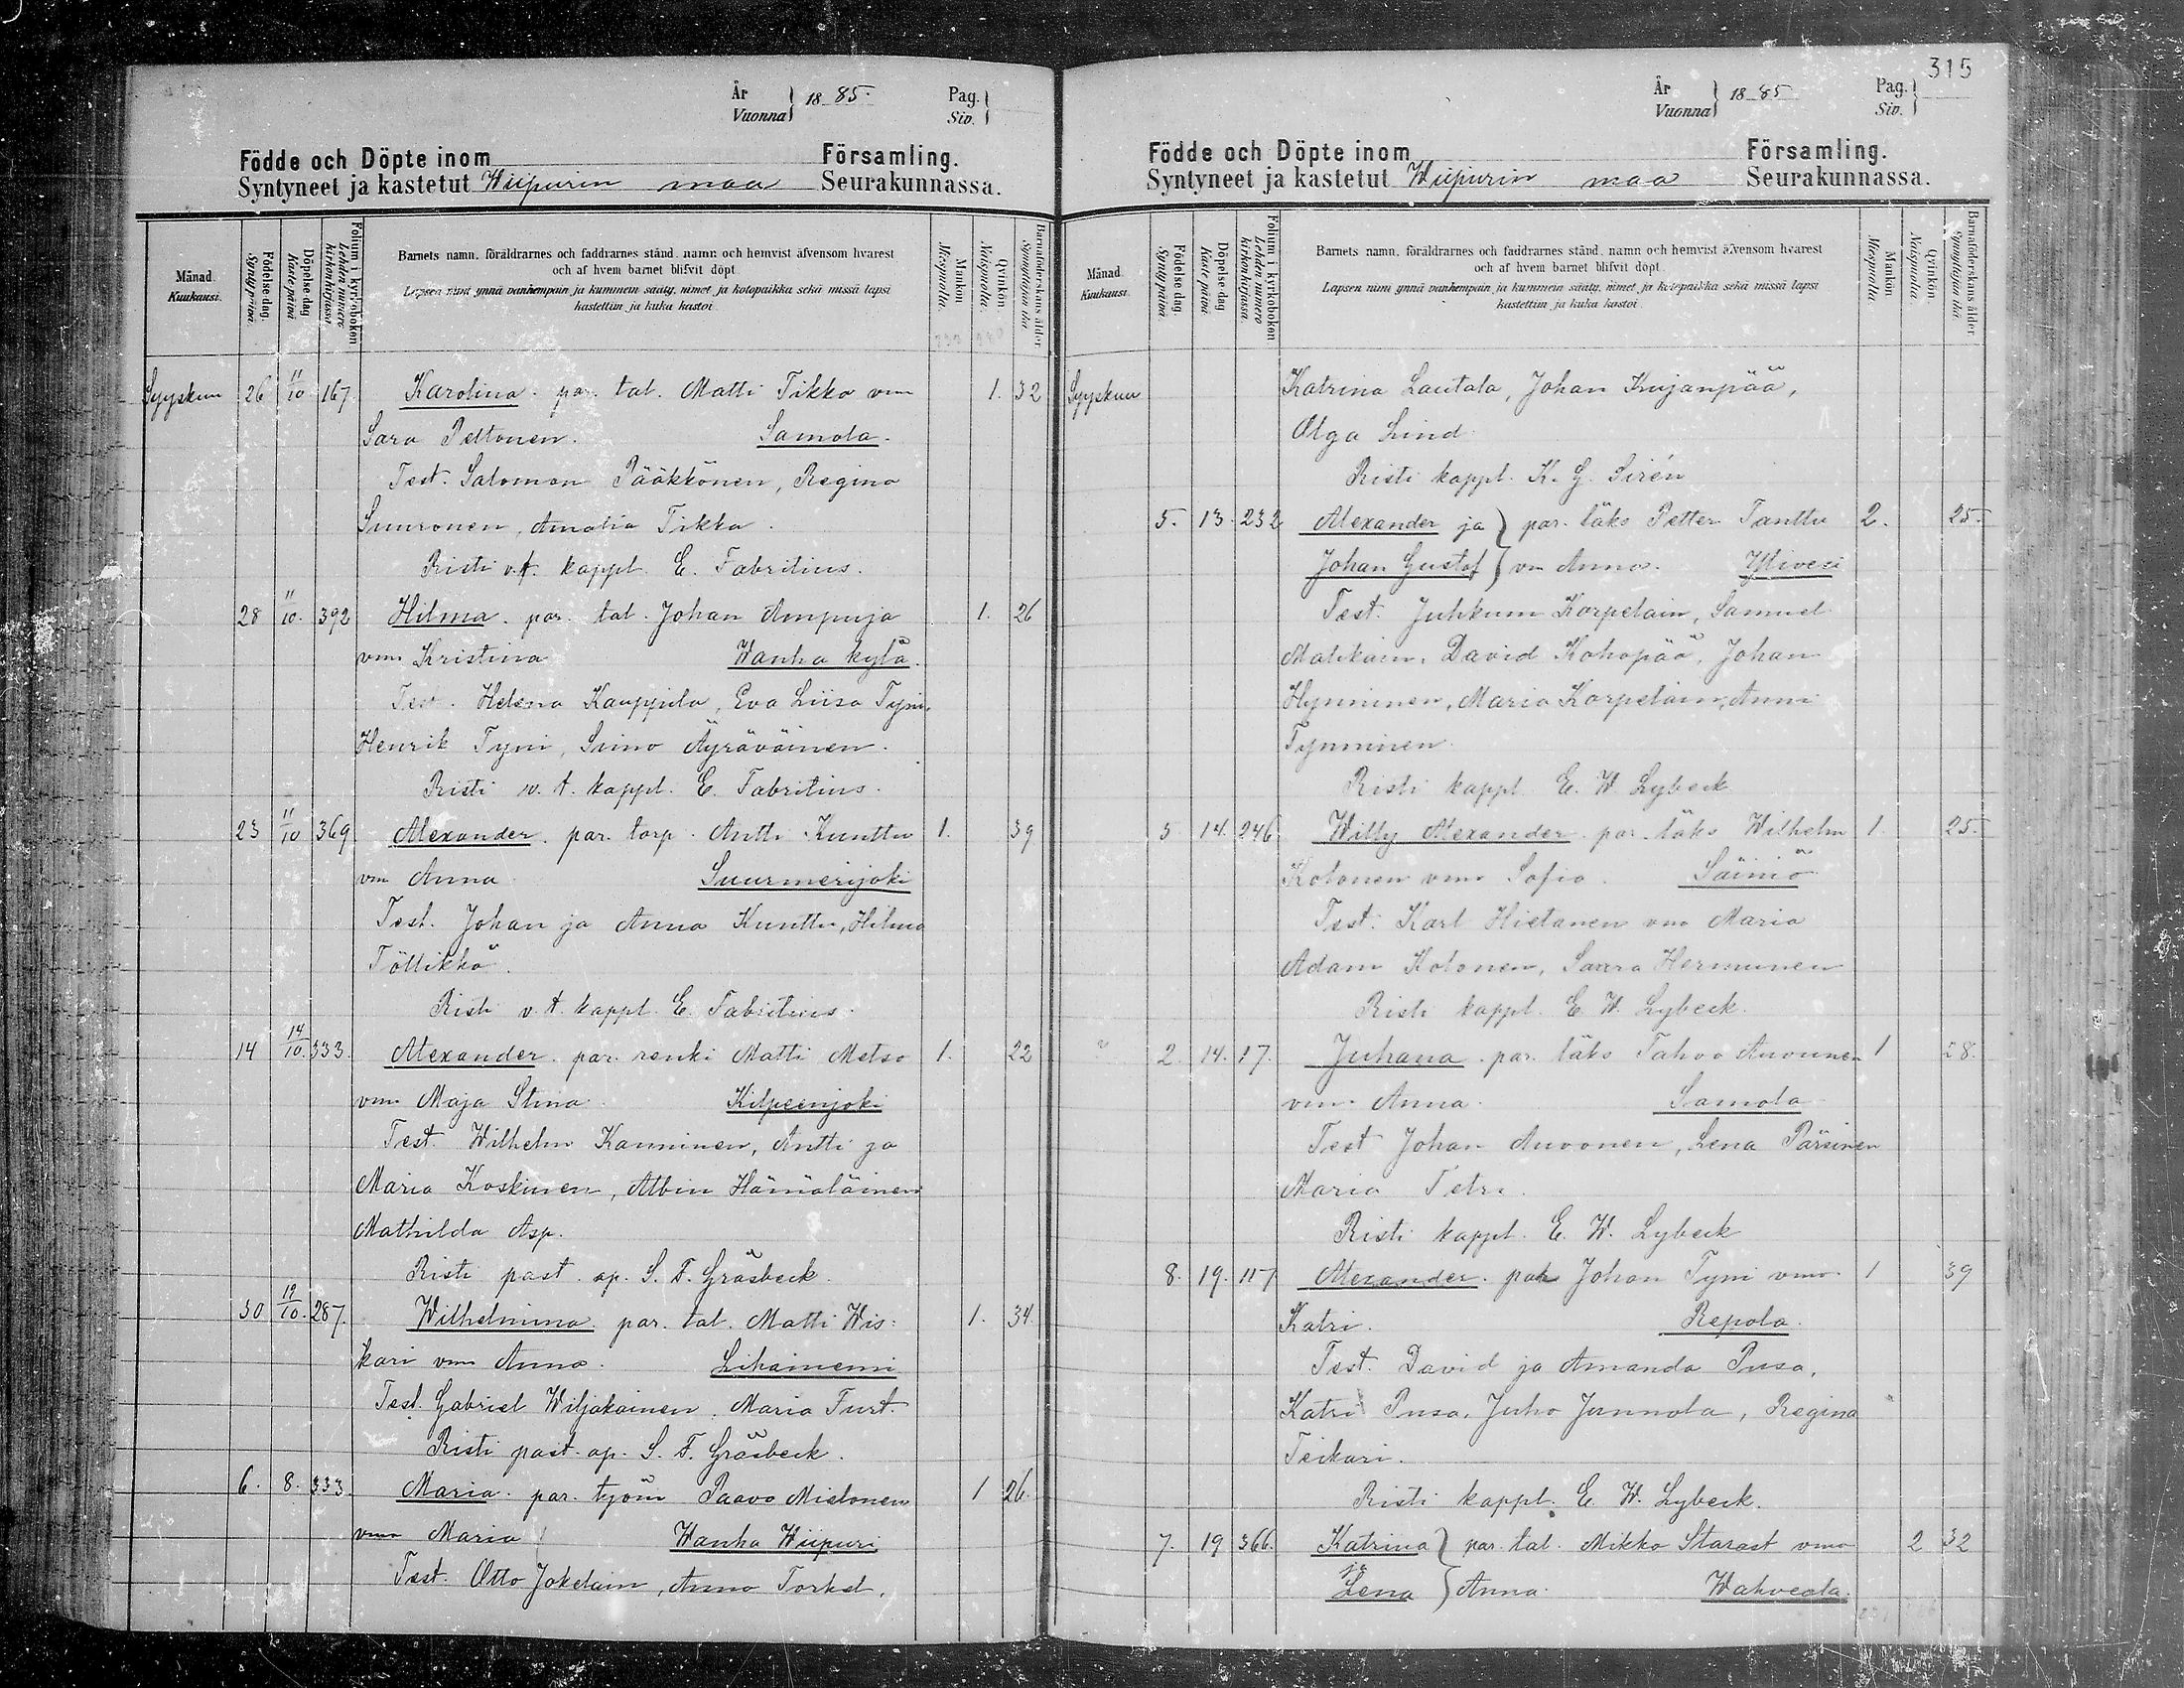 År Vuonna } 1885. Pag. Siv. }
Födde och Döpte inom Församling.
Syntyneet ja kastetut Wiipurin maa Seurakunnassa.
Månad. Kuukausi.
Födelse dag. Syntypäivä
Döpelse dag Kastepäivä
Folium i kyrkoboken Lehden numero kirkonkirjassa
Barnets namn, föräldrarnes och faddrarnes stånd, namn och hemvist äfvensom hvarest
och af hvem barnet blifvit döpt.
Lapsen nimi ynnä vanhempain ja kummein sääty, nimet ja kotopaikka sekä missä lapsi
kastettiin ja kuka kastoi.
Mankön Miespuolta.
Qvinkön Naispuolta.
Barnaföderskans ålder Synnyttäjän ikä
Syyskuu 26 11/10 167 Karolina. par. tal. Matti Tikka vmo 1. 32
Sara Peltonen. Samola.
Test. Salomon Pääkkönen, Regina
Suuronen, Amalia Tikka.
Risti v.t. kappl. E. Fabritius.
28 11/10. 392 Hilma. par. tal. Johan Ampuja 1. 26
vmo Kristina Wanha kylä.
Test. Helena Kauppila, Eva Liisa Tyni,
Henrik Tyni, Simo Äyräväinen.
Risti v. t. kappl. E. Fabritius.
23 11/10 369 Alexander. par. torp. Antti Kunttu 1. 39
vmo Anna Suurmerijoki
Test. Johan ja Anna Kunttu, Hilma
Töttikkö.
Risti v. t. kappl. E. Fabritius.
14 14/10. 333. Alexander. par. renki Matti Metso 1. 22
vmo Maja Stina. Kilpeenjoki
Test. Wilhelm Kanninen, Antti ja
Maria Koskinen, Albin Hämäläinen
Mathilda Asp.
Risti past. ap. S. F. Gräsbeck.
30 19/10. 287. Wilhelmina par. tal. Matti Wis=
kari vmo Anna. Lihaniemi 1. 34.
Test. Gabriel Wiljakainen, Maria Turt.
Risti past. ap. S. F. Gräsbeck.
6. 8. 333. Maria. par. työm Paavo Mielonen 1 26.
vmo Maria Wanha Wiipuri
Test. Otto Jokelain, Anna Torkel,
315
År Vuonna } 1885 Pag. Siv. }
Födde och Döpte inom Församling.
Syntyneet ja kastetut Wiipurin maa Seurakunnassa.
Månad. Kuukausi.
Födelse dag Syntypäivä.
Döpelse dag Kastepäivä.
Folium i kyrkoboken Lehden numero kirkonkirjassa.
Barnets namn, föräldrarnes och faddrarnes stånd, namn och hemvist äfvensom hvarest
och af hvem barnet blifvit döpt.
Lapsen nimi ynnä vanhempain ja kummein sääty, nimet ja kotopaikka sekä missä lapsi
kastettiin ja kuka kastoi.
Mankön Miespuolta
Qvinkön. Naispuolta.
Barnaföderskans ålder Synnyttäjän ikä.
Syyskuu Katrina Lautala, Johan Kujanpää,
Olga Lind.
Risti kappl. K. G. Sirén
5. 13. 232 Alexander ja } par. läks Petter Tanttu 2. 25.
Johan Gustaf } vmo Anna. Ylivesi
Test. Juhkum Korpelain, Samuel
Matikain, David Kohopää, Johan
Hynninen, Maria Korpelain, Anni
Tynninen.
Risti kappl. E. W. Lybeck
5 14. 246 Willy Alexander. par. läks Wilhelm 1 25.
Kolonen vmo Sofia. Säiniö
Test. Karl Hietanen vmo Maria
Adam Kolonen, Saara Hermunen
Risti kappl. E. W. Lybeck.
" 2. 14. 17. Juhana. par. läks Tahvo Auvonen 1 28.
vmo Anna. Samola
Test Johan Auvonen, Lena Pärsinen
Maria Tetri.
Risti kappl. E. W. Lybeck
8. 19. 117 Alexander. par Johan Tyni vmo 1 39
Katri. Repola.
Test. David ja Amanda Pusa,
Katri Pusa, Juho Junnola, Regina
Teikari.
Risti kappl. E. W. Lybeck.
7. 19 366. Katrina } par. tal. Mikko Starast vmo 2 32
ja Lena } Anna. Wahveala.